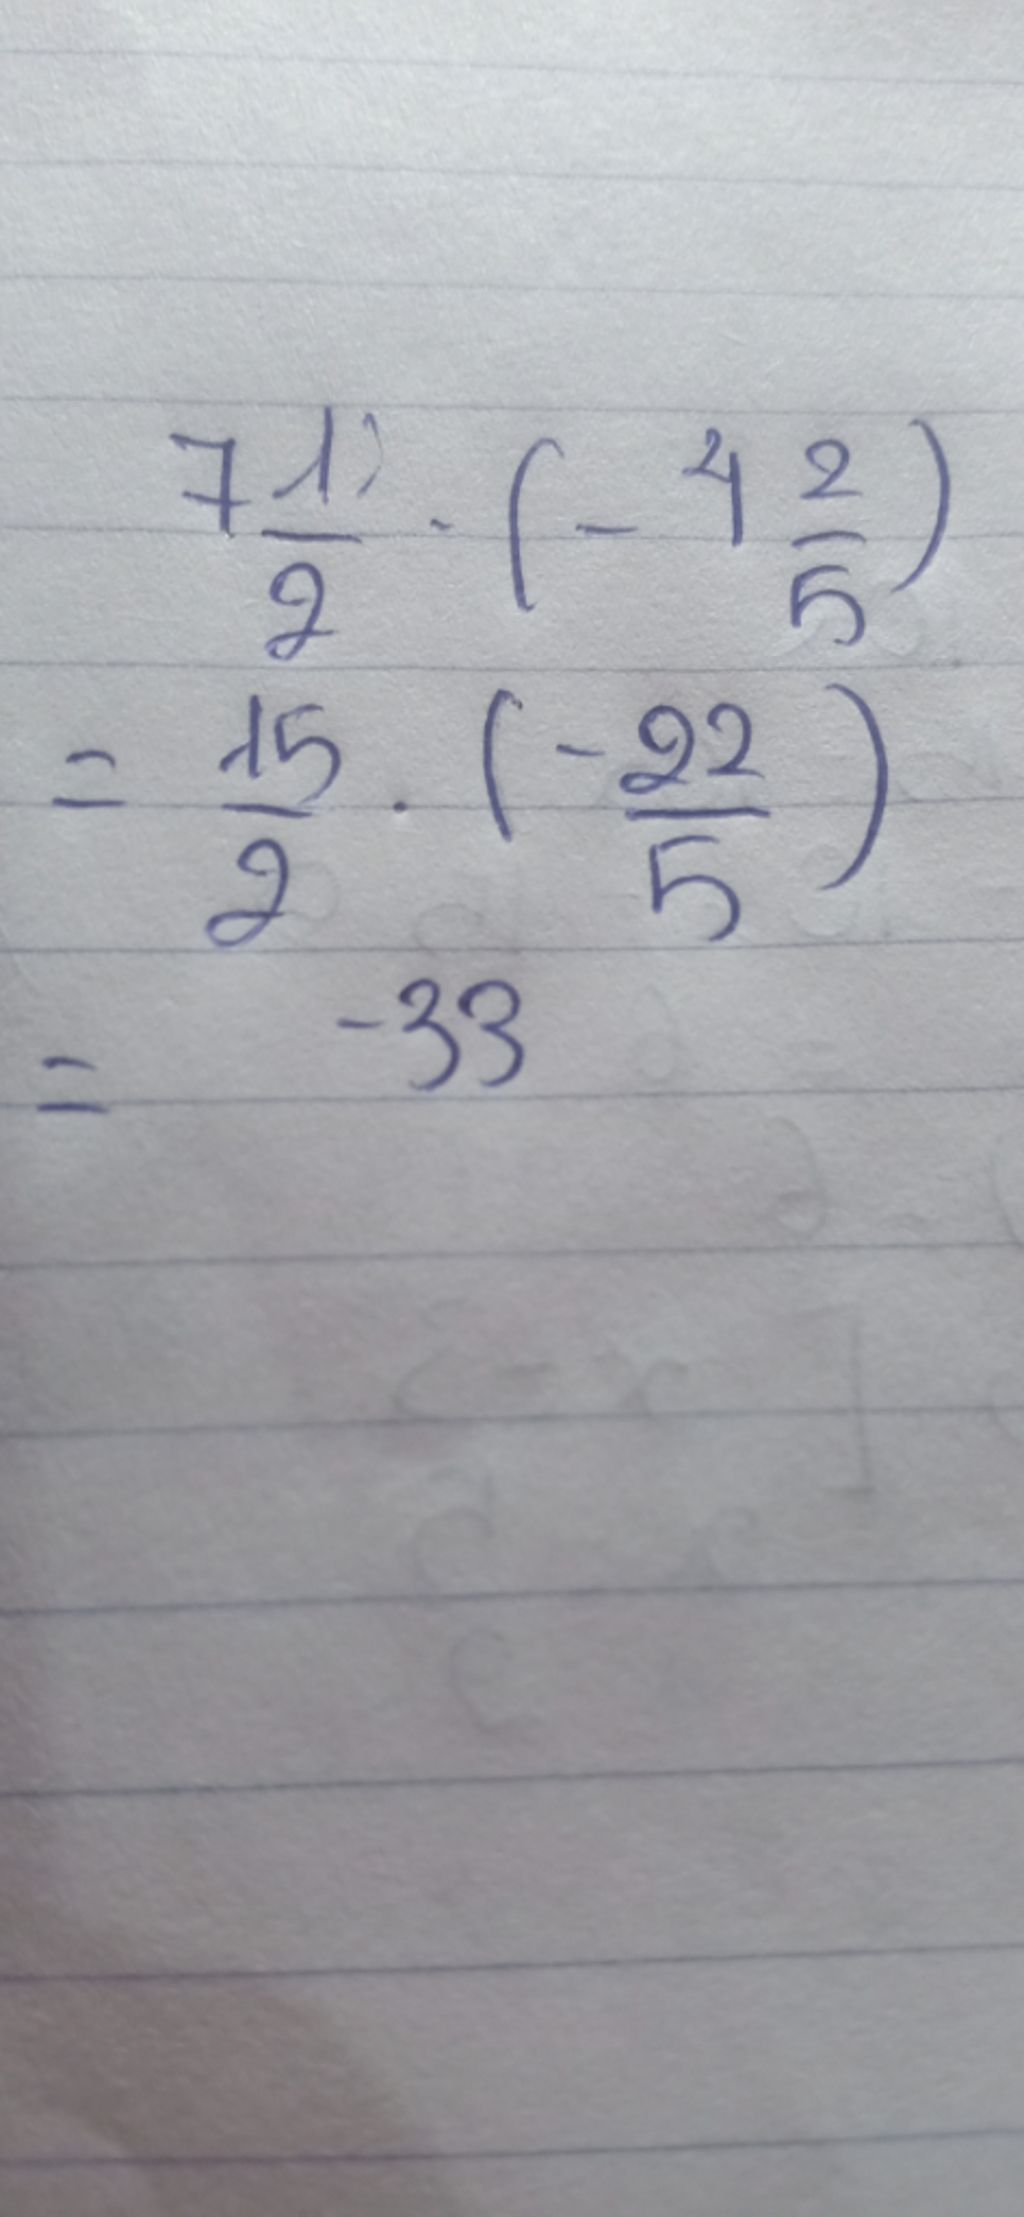 7 1/2 · (- 4 2/5)
= 15/2 · (-22/5)
= -33